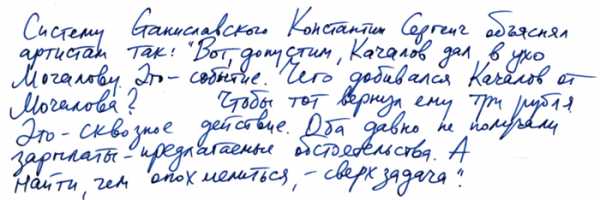 Систему Станиславского Константин Сергеич объяснял
артистам так: "Вот, допустим, Качалов дал в ухо
Мочалову. Это - событие. Чего добивался Качалов от
Мочалова? Чтобы тот вернул ему три рубля
Это - сквозное действие. Оба давно не получали
зарплаты - предлагаемые обстоятельства. А
найти, чем опохмелиться, - сверхзадача".